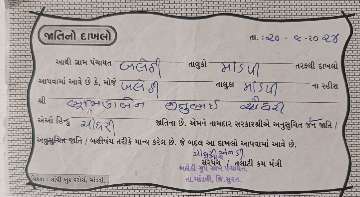 જાતિનો દાખલો
તા. : ૨૦ - ૯ - ૨૦૨૪
આથી ગ્રામ પંચાયત બલેઠી તાલુકો માંડવી તરફથી દાખલો
આપવામાં આવે છે કે, મોજે બલેઠી તાલુકા માંડવી ના રહીશ
શ્રી ચૌધરી
એઓ હિન્દુ ચૌધરી જાતિના છે. એમને નામદાર સરકારશ્રીએ અનુસૂચિત જન જાતિ /
અનુસૂચિત જાતિ / બક્ષીપંચ તરીકે માન્ય કરેલ છે. જે બદલ આ દાખલો આપવામાં આવે છે.
સરપંચ / તલાટી કમ મંત્રી
બલેઠી ગ્રામ પંચાયત
તા. માંડવી, જિ. સુરત.